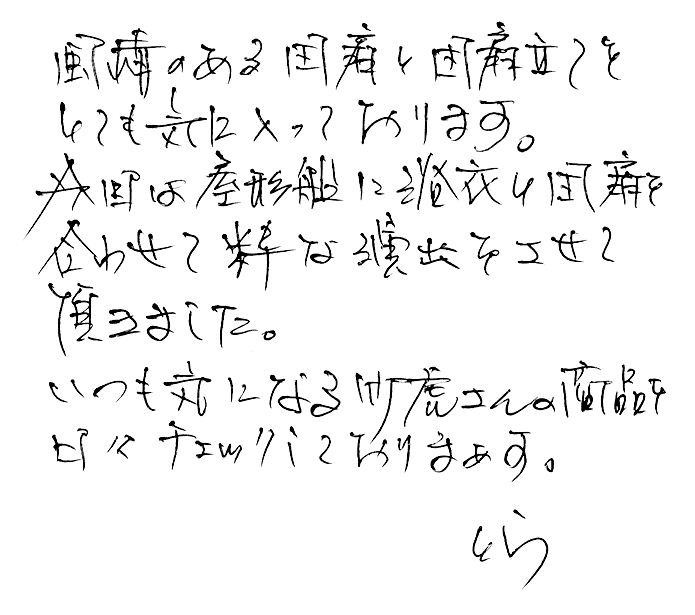 風情のある団扇と団扇立てを
とても気に入っております。
今回は屋形船に浴衣と団扇を
合わせて粋な演出をさせて
頂きました。
いつも気になる竹虎さんの商品を
日々チェックしておりまぁす。
とら